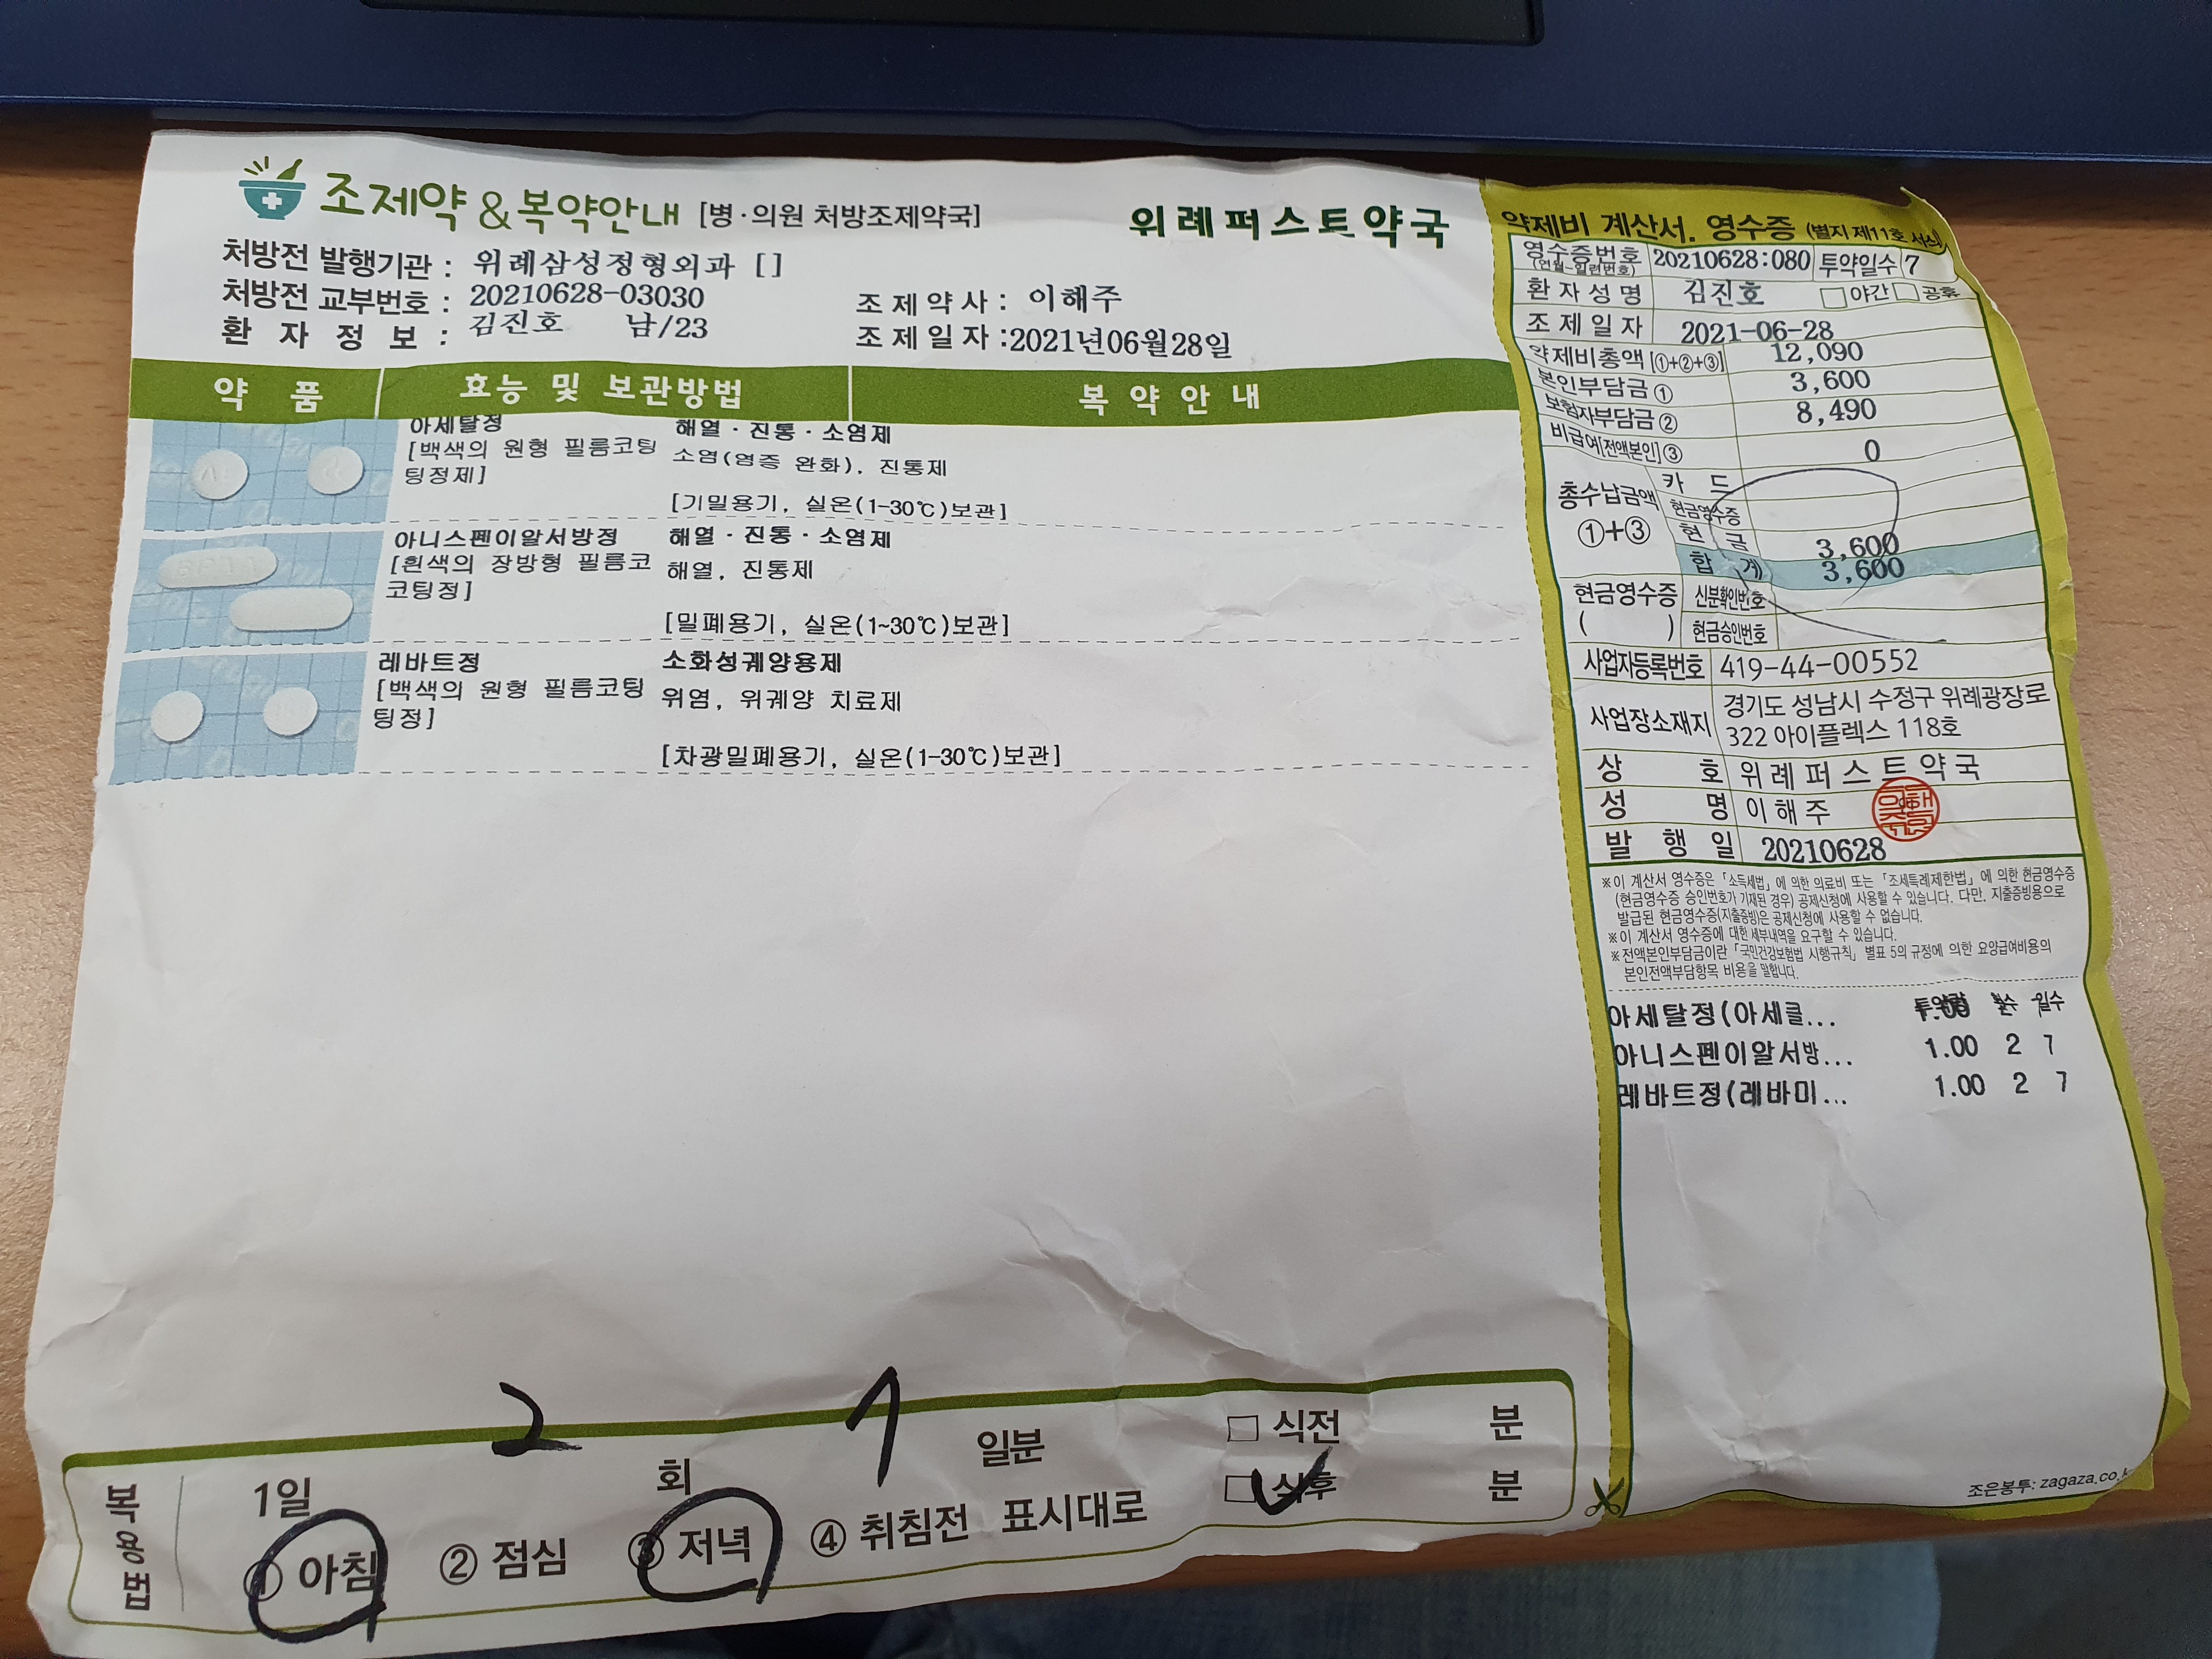 조제약 & 복약안내 [병·의원 처방조제약국]
위례퍼스트약국
처방전 발행기관 : 위례삼성정형외과 [ ]
처방전 교부번호 : 20210628-03030
조제약사 : 이해주
환자정보 : 김진호 남/23
조제일자 :2021년06월28일
약품
효능 및 보관방법
복약안내
아세탈정
[백색의 원형 필름코팅
팅정제]
해열·진통·소염제
소염(염증 완화), 진통제
[기밀용기, 실온(1-30℃)보관]
아니스펜이알서방정
[흰색의 장방형 필름코
코팅정]
해열·진통·소염제
해열, 진통제
[밀폐용기, 실온(1~30℃)보관]
레바트정
[백색의 원형 필름코팅
팅정]
소화성궤양용제
위염, 위궤양 치료제
[차광밀폐용기, 실온(1-30℃)보관]
복용법
1일 2 회 7 일분
① 아침 ② 점심 ③ 저녁 ④ 취침전 표시대로
□ 식전 분
□ 식후 분
약제비 계산서. 영수증 (별지 제11호 서식)
영수증번호 20210628:080 투약일수 7
(연월-일련번호)
환자성명 김진호 □야간 □공휴
조제일자 2021-06-28
약제비총액[①+②+③] 12,090
본인부담금 ① 3,600
보험자부담금 ② 8,490
비급여(전액본인) ③ 0
총수납금액
①+③
카드
현금영수증
현금 3,600
합계 3,600
현금영수증
( )
신분확인번호
현금승인번호
사업자등록번호 419-44-00552
사업장소재지 경기도 성남시 수정구 위례광장로
322 아이플렉스 118호
상호 위례퍼스트약국
성명 이해주
발행일 20210628
※이 계산서 영수증은 「소득세법」에 의한 의료비 또는 「조세특례제한법」에 의한 현금영수증
(현금영수증 승인번호가 기재된 경우) 공제신청에 사용할 수 있습니다. 다만, 지출증빙용으로
발급된 현금영수증(지출증빙)은 공제신청에 사용할 수 없습니다.
※이 계산서 영수증에 대한 세부내역을 요구할 수 있습니다.
※전액본인부담금이란 「국민건강보험법 시행규칙」 별표 5의 규정에 의한 요양급여비용의
본인전액부담항목 비용을 말합니다.
일수
아세탈정(아세클...
아니스펜이알서방... 1.00 2 7
레바트정(레바미... 1.00 2 7
조은봉투: zagaza.co.k